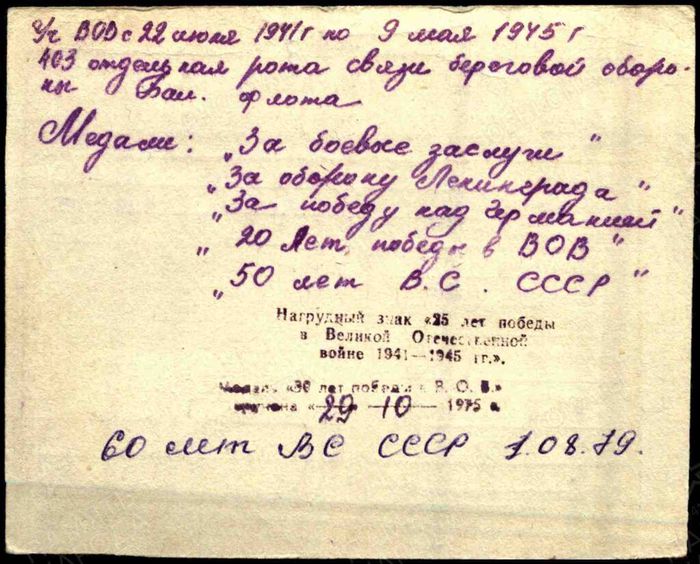 Уч ВОВ с 22 июня 1941 г по 9 мая 1945 г
403 отдельная рота связи береговой оборо-
ны Бал. флота
Медали: „За боевые заслуги"
„За оборону Ленинграда"
„За победу над Германией"
„20 лет победы в ВОВ"
„50 лет В.С. СССР"
Нагрудный знак «25 лет победы
в Великой Отечественной
войне 1941—1945 гг.».
Медаль «30 лет победы в В. О. В.»
вручена «29» 10 1975 г.
60 лет ВС СССР 1.08.79.